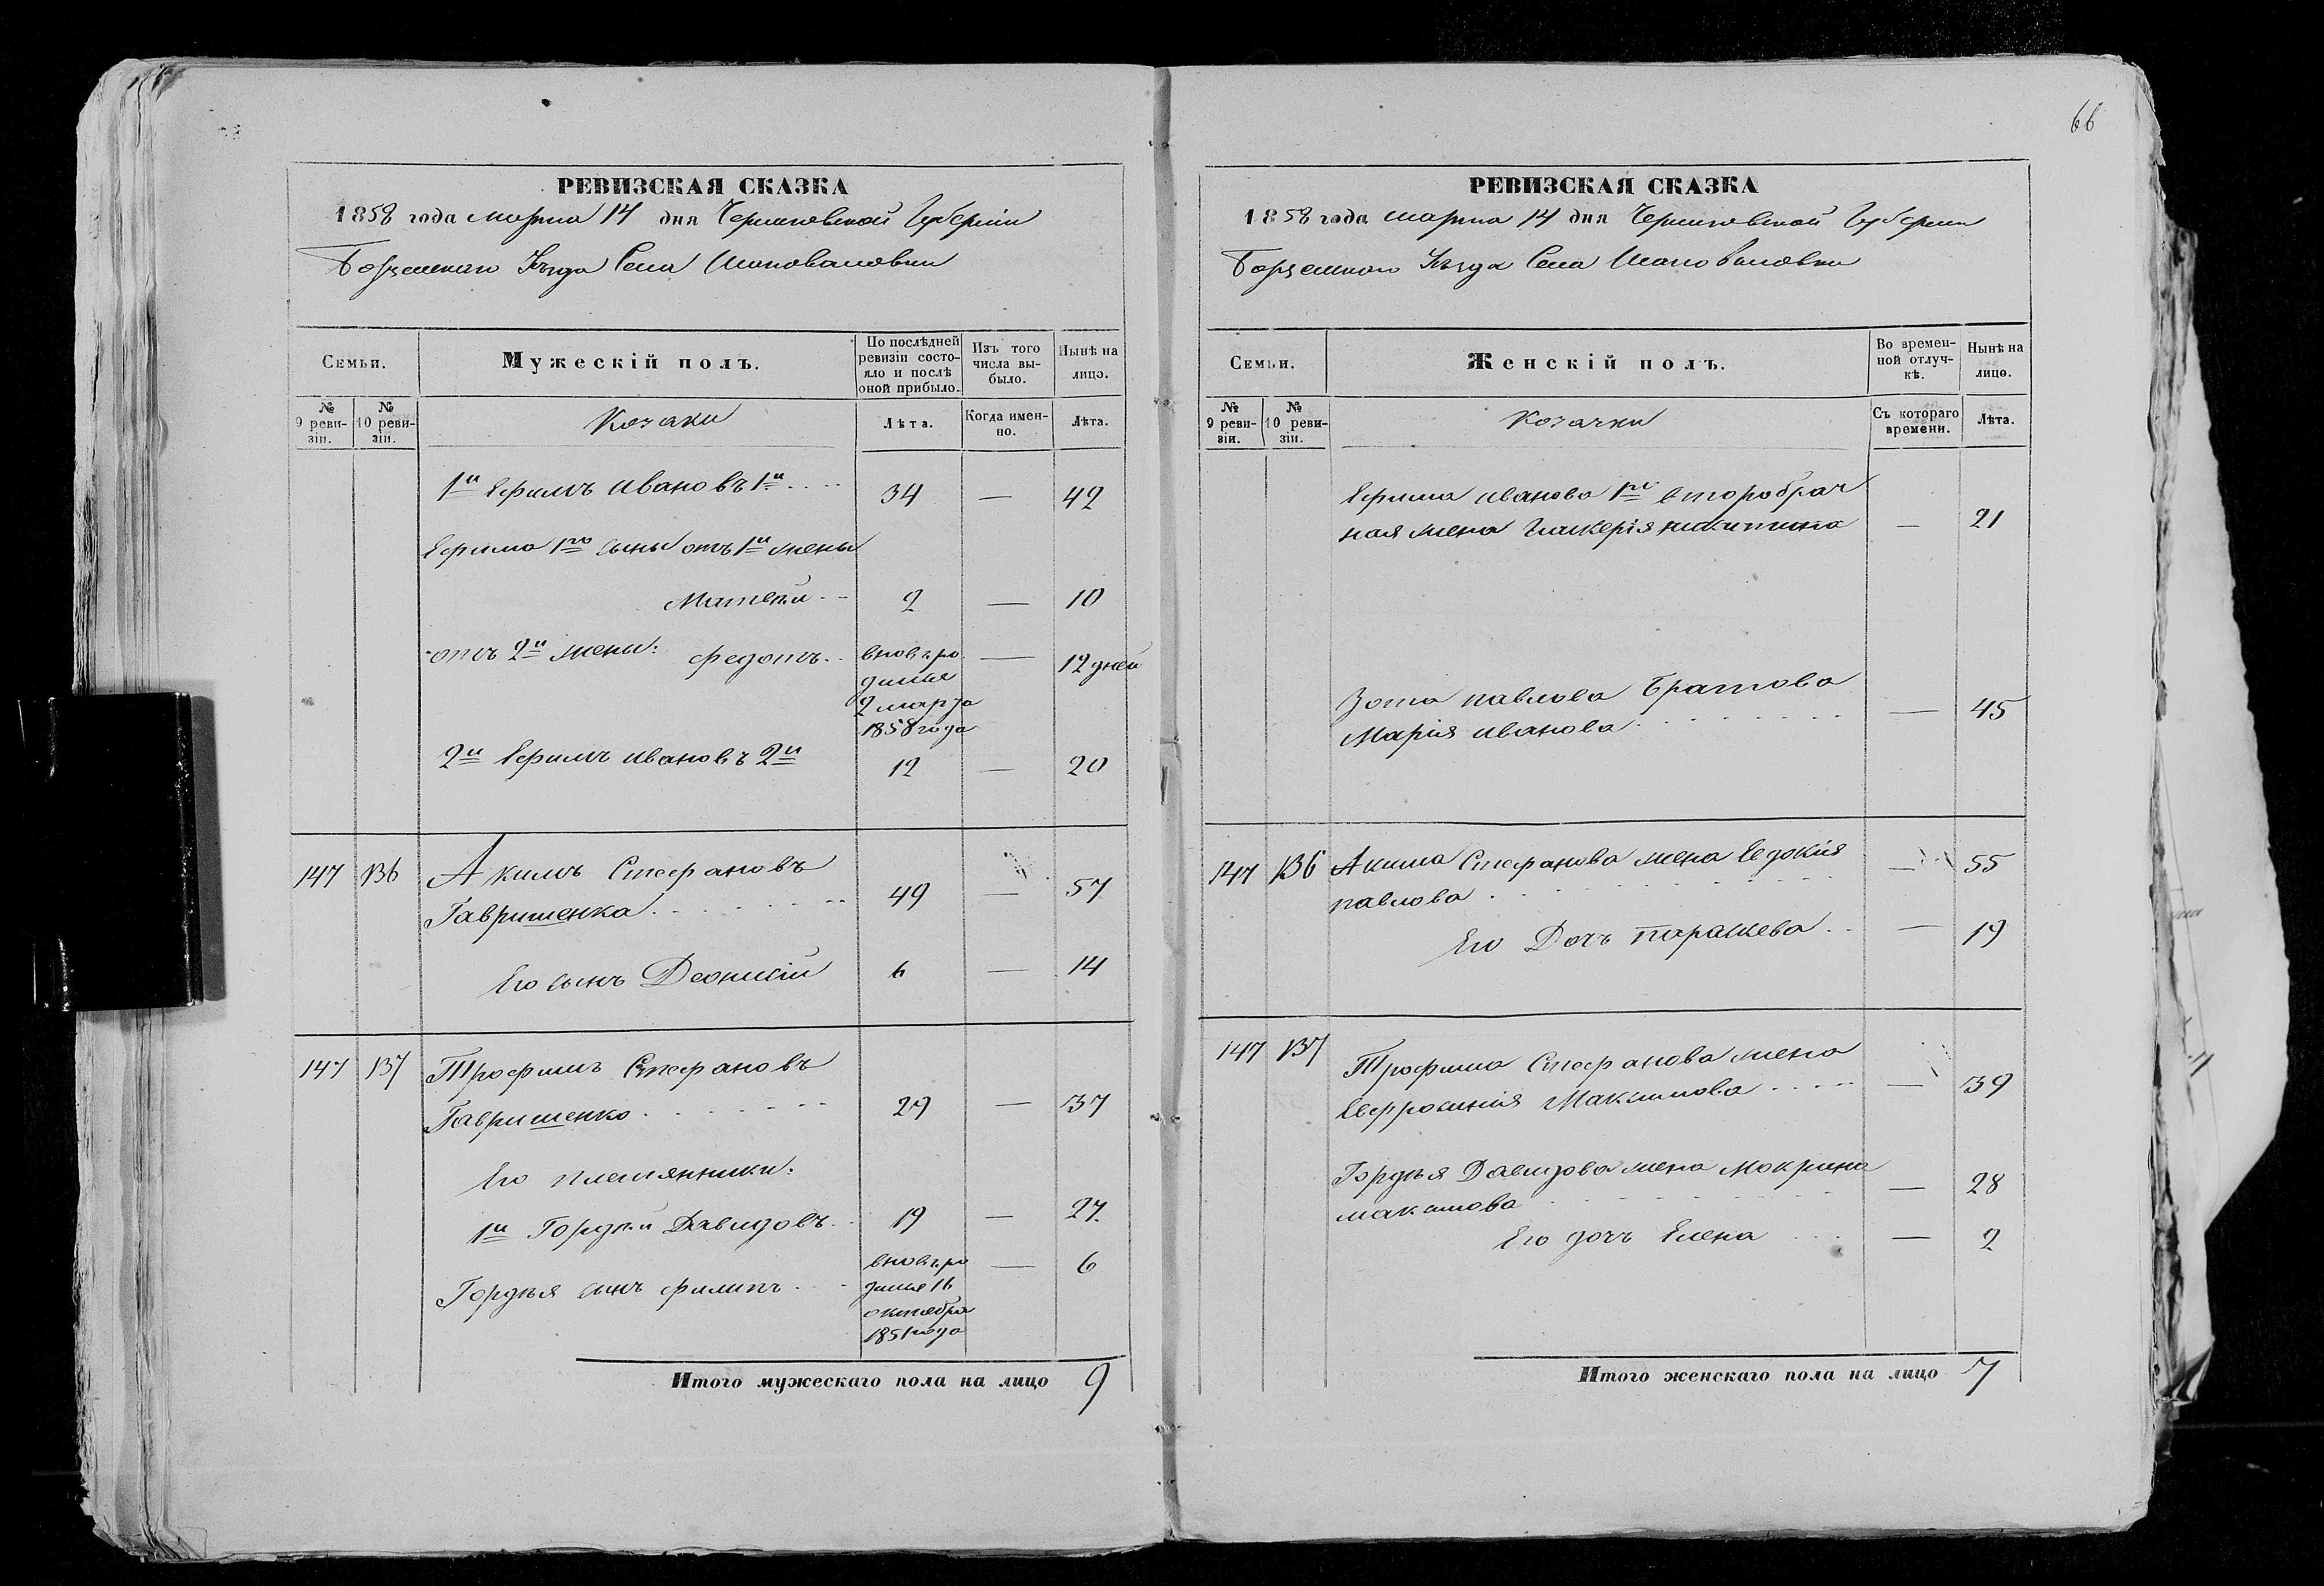 66
РЕВИЗСКАЯ СКАЗКА
1858 года марта 14 дня Черниговской Губернии
Борзенскаго Уѣзда Села Шаповаловки
Семьи.
Мужескій полъ.
По послѣдней ревизіи состояло и послѣ оной прибыло.
Изъ того числа выбыло.
Нынѣ на лицо.
№ 9 ревизіи.
№ 10 ревизіи.
Козаки
Лѣта.
Когда именно.
Лѣта.
1й Ефимъ Ивановъ 1й 34 — 42
Ефима 1го сыны отъ 1й жены
Матвѣй 2 — 10
отъ 2й жены: Федотъ вновь ро — 12 дней
дился
2 марта
1858 года
2й Ефимъ Ивановъ 2й 12 — 20
147 136 Акимъ Стефановъ
Гавришенка 49 — 57
Его сынъ Деонисій 6 — 14
147 137 Трофимъ Стефановъ
Гавришенко 29 — 37
Его племянники:
1й Гордѣй Давидовъ 19 — 27
Гордѣя сынъ Филипъ вновь ро — 6
дился 16
октября
1851 года
Итого мужескаго пола на лицо 9
РЕВИЗСКАЯ СКАЗКА
1858 года марта 14 дня Черниговской Губернии
Борзенскаго Уѣзда Села Шаповаловки
Семьи.
Женскій полъ.
Во временной отлучкѣ.
Нынѣ на лицо.
№ 9 ревизіи.
№ 10 ревизіи.
Козачки
Съ котораго времени.
Лѣта.
Ефима Иванова 1го второбрач
ная жена Гликерія Никитина — 21
Зота Павлова Братова
Марія Иванова — 45
147 136 Акима Стефанова жена Евдокія — 55
Павлова
Его Дочь Параскева — 19
147 137 Трофима Стефанова жена
Евфросинія Максимова — 39
Гордѣя Давидова жена Мокрина — 28
Максимова
Его дочь Елена — 2
Итого женскаго пола на лицо 7